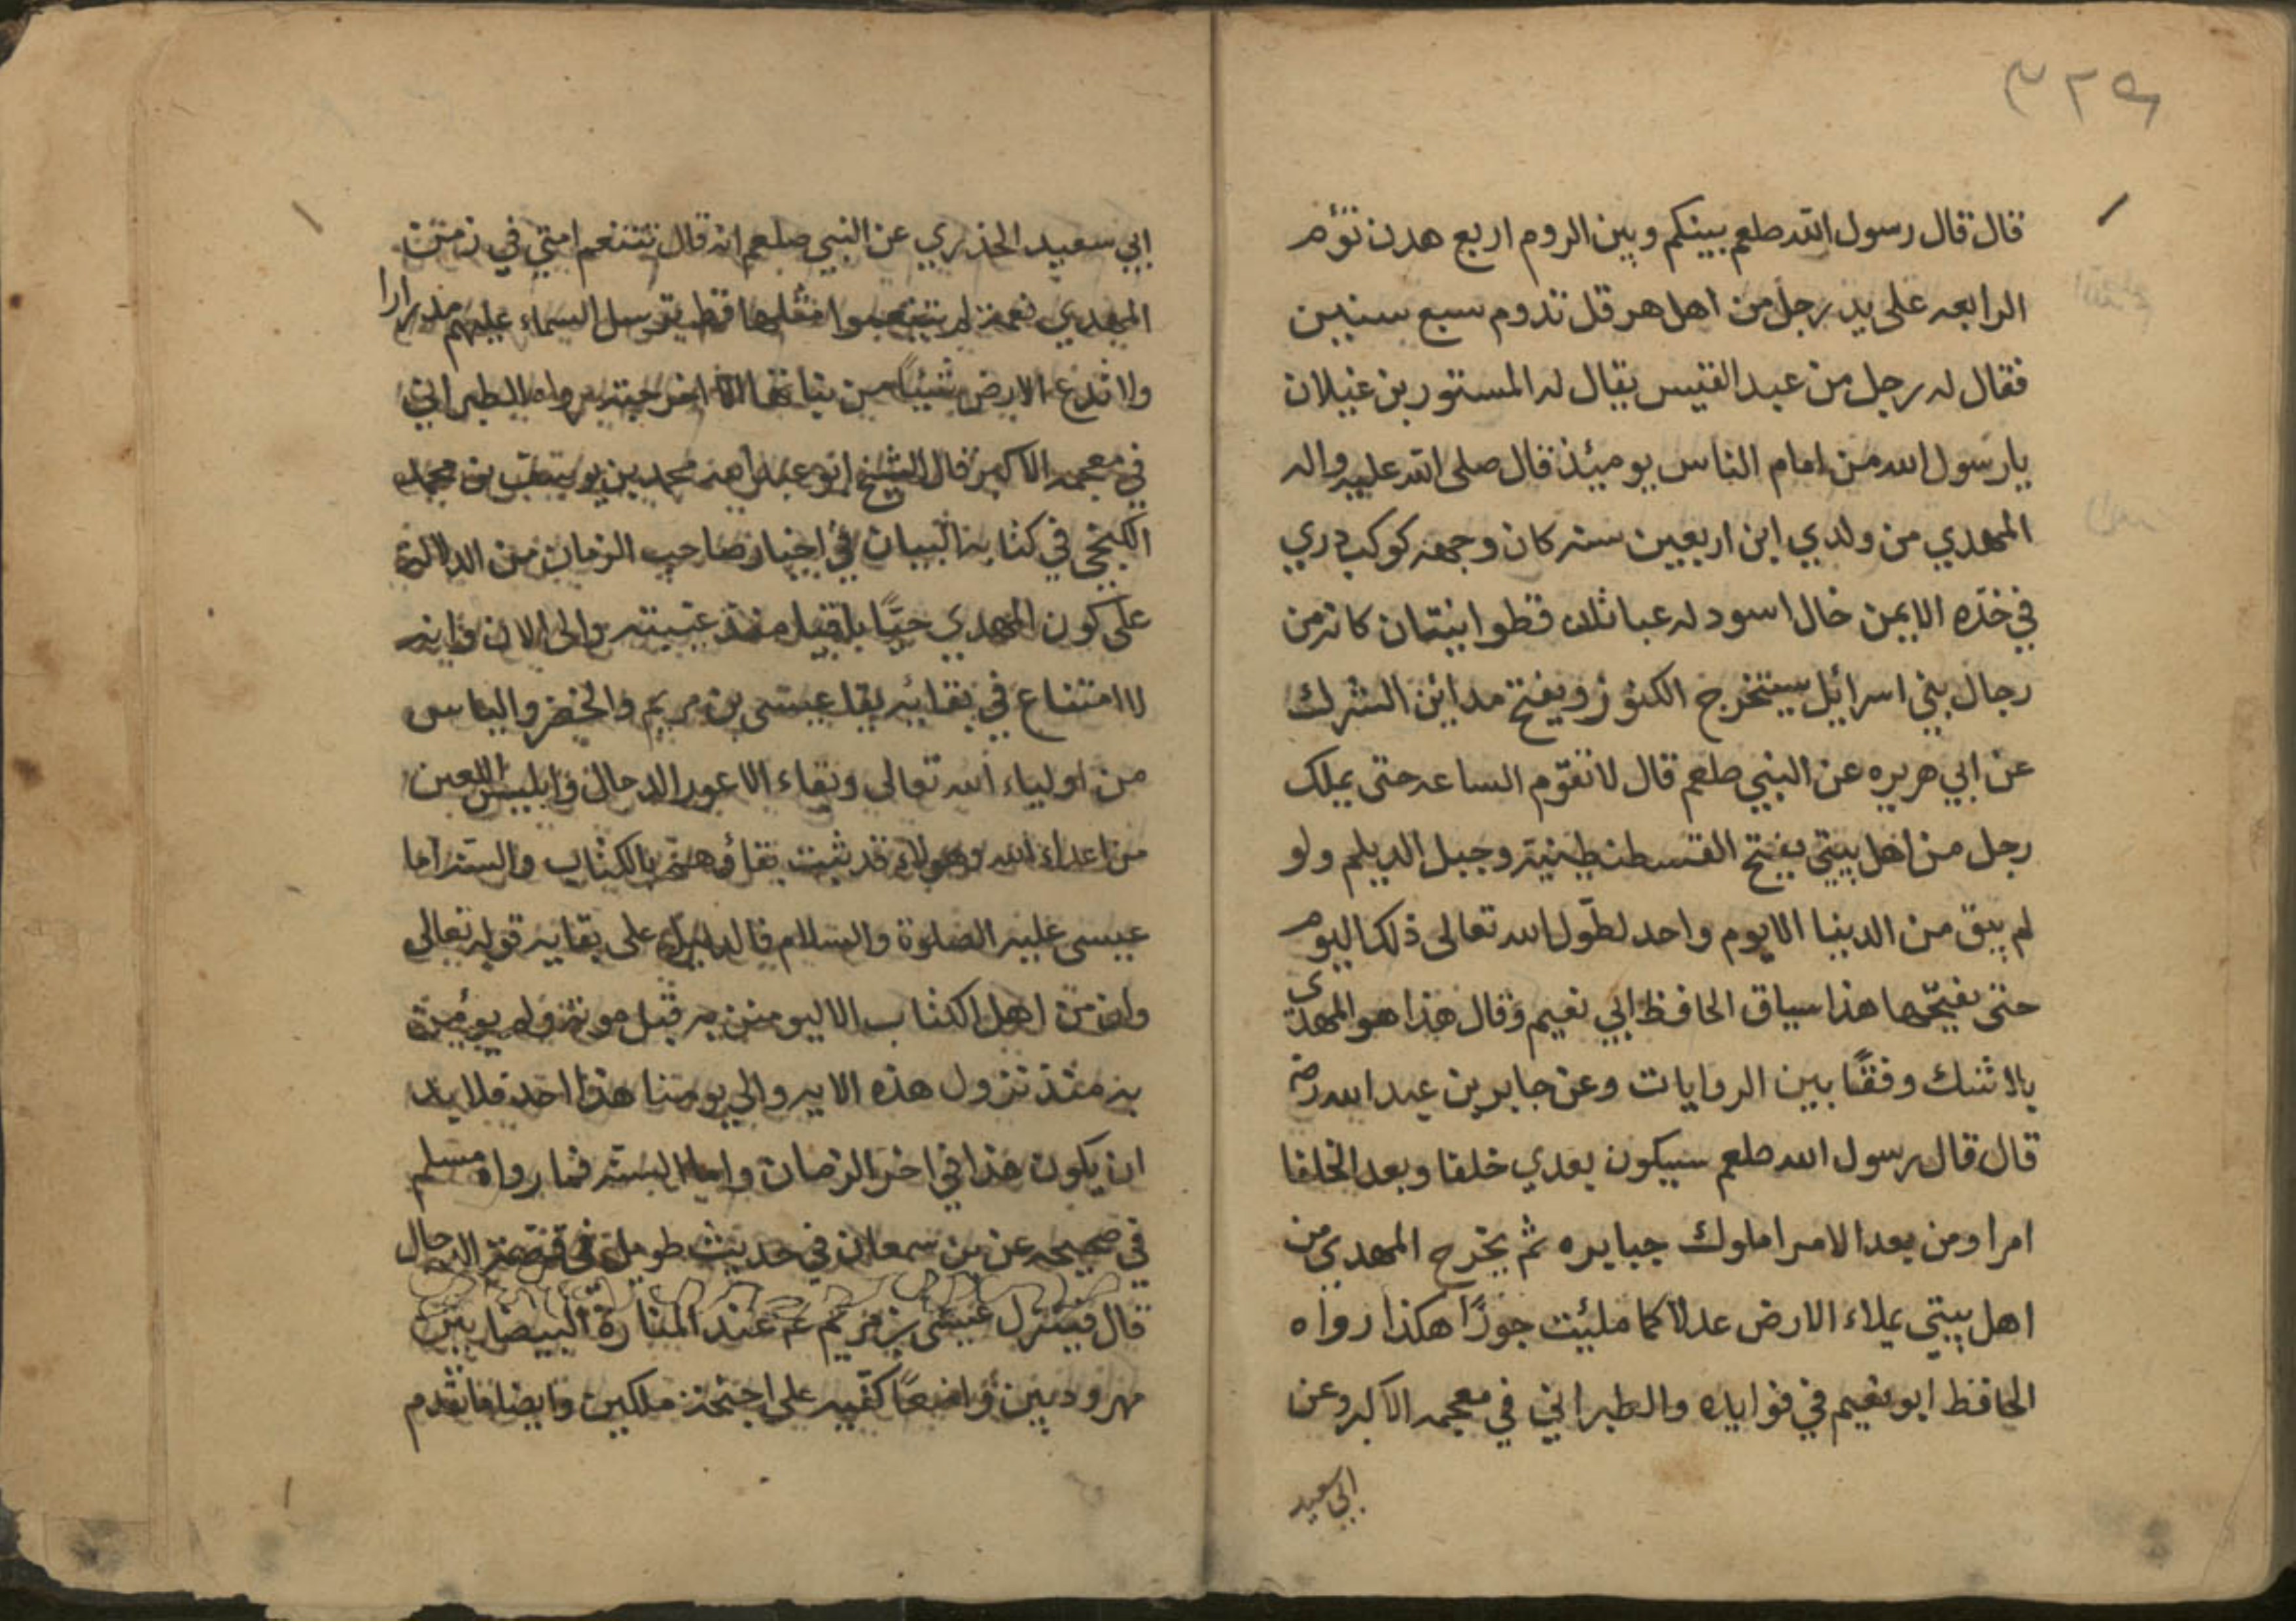 ٣٢٩
قال قال رسول الله صلعم بينكم وبين الروم اربع هدن تؤم
الرابعه على يد رجل من اهل هرقل تدوم سبع سنين
فقال له رجل من عبد القيس يقال له المستور بن غيلان
يا رسول الله من امام الناس يومئذ قال صلى الله عليه واله
المهدي من ولدي ابن اربعين سنه كان وجهه كوكب دري
في خدّه الايمن خال اسود له عباتان قطوانيتان كانه من
رجال بني اسرائيل يستخرج الكنوز ويفتح مداين الشرك
عن ابي هريره عن النبي صلعم قال لا تقوّم الساعه حتى يملك
رجل من اهل بيتي يفتح القسطنطينية وجبل الديلم ولو
لم يبق من الدينا الا يوم واحد لطوّل الله تعالى ذلك اليوم
حتى يفتحها هذا سياق الحافظ ابي نعيم وقال هذا هو المهدي
بلا شك وفقًا بين الروايات وعن جابر بن عبد الله رض
قال قال رسول الله صلعم سيكون بعدي خلفا وبعد الخلفا
امرا ومن بعد الامرا ملوك جبابره ثم يخرج المهدي من
اهل بيتي يملاء الارض عدلا كما ملئت جورًا هكذا رواه
الحافظ ابو نعيم في فوايده والطبراني في معجمه الاكبر وعن
ابي سعيد
ابي سعيد الخذري عن النبي صلعم انه قال تتنعم امتي في زمن
المهدي نعمة لم يتنعموا مثلها قط يرسل السماء عليهم مدرارا
ولا تدع الارض شيئًا من نباتها الا اخرجته رواه الطبراني
في معجمه الاكبر قال الشيخ ابو عبد الله محمد بن يوسف بن محمد
الكنجي في كتابه البيان في اخبار صاحب الزمان من الدلالة
على كون المهدي حيًّا باقيا منذ غيبته والى الان وانه
لا امتناع في بقائه بقا عيسى بن مريم والخضر والياس
من اولياء الله تعالى وبقاء الاعور الدجال وابليس اللعين
من اعداء الله وهولاء قد ثبت بقاؤهم بالكتاب والسنه اما
عيسى عليه الصلوة والسلام فالدليل على بقايه قوله تعالى
وان من اهل الكتاب الا ليومنن به قبل موته ولم يؤمن
به منذ نزول هذه الايه والي يومنا هذا احد فلا بد
ان يكون هذا في اخر الزمان واما السنه فما رواه مسلم
في صحيحه عن بن سمعان في حديث طويل في قصة الدجال
قال فينزل عيسى بن مريم عم عند المنارة البيضا بين
مهرودين واضعًا كفّيه على اجنحة ملكين وايضا ما تقدم